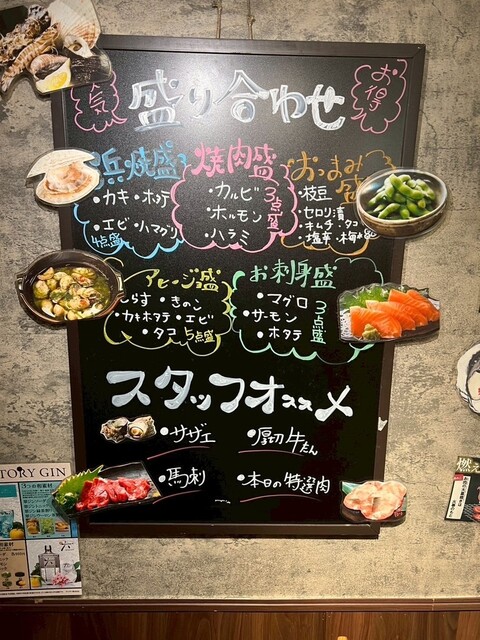 人気
盛り合わせ
お得
浜焼盛
・カキ・ホタテ
・エビ・ハマグリ
4点盛
焼肉盛
・カルビ
・ホルモン
・ハラミ
3点盛
おつまみ盛
・枝豆
・セロリ漬
・キムチ・タコ
・塩辛・梅水晶
アヒージョ盛
しらす・きのこ
・カキホタテ・エビ
・タコ 5点盛
お刺身盛
・マグロ
・サーモン
・ホタテ
3点盛
スタッフオススメ
・サザエ
・厚切牛たん
・馬刺
・本日の特選肉
TORY GIN
燃え